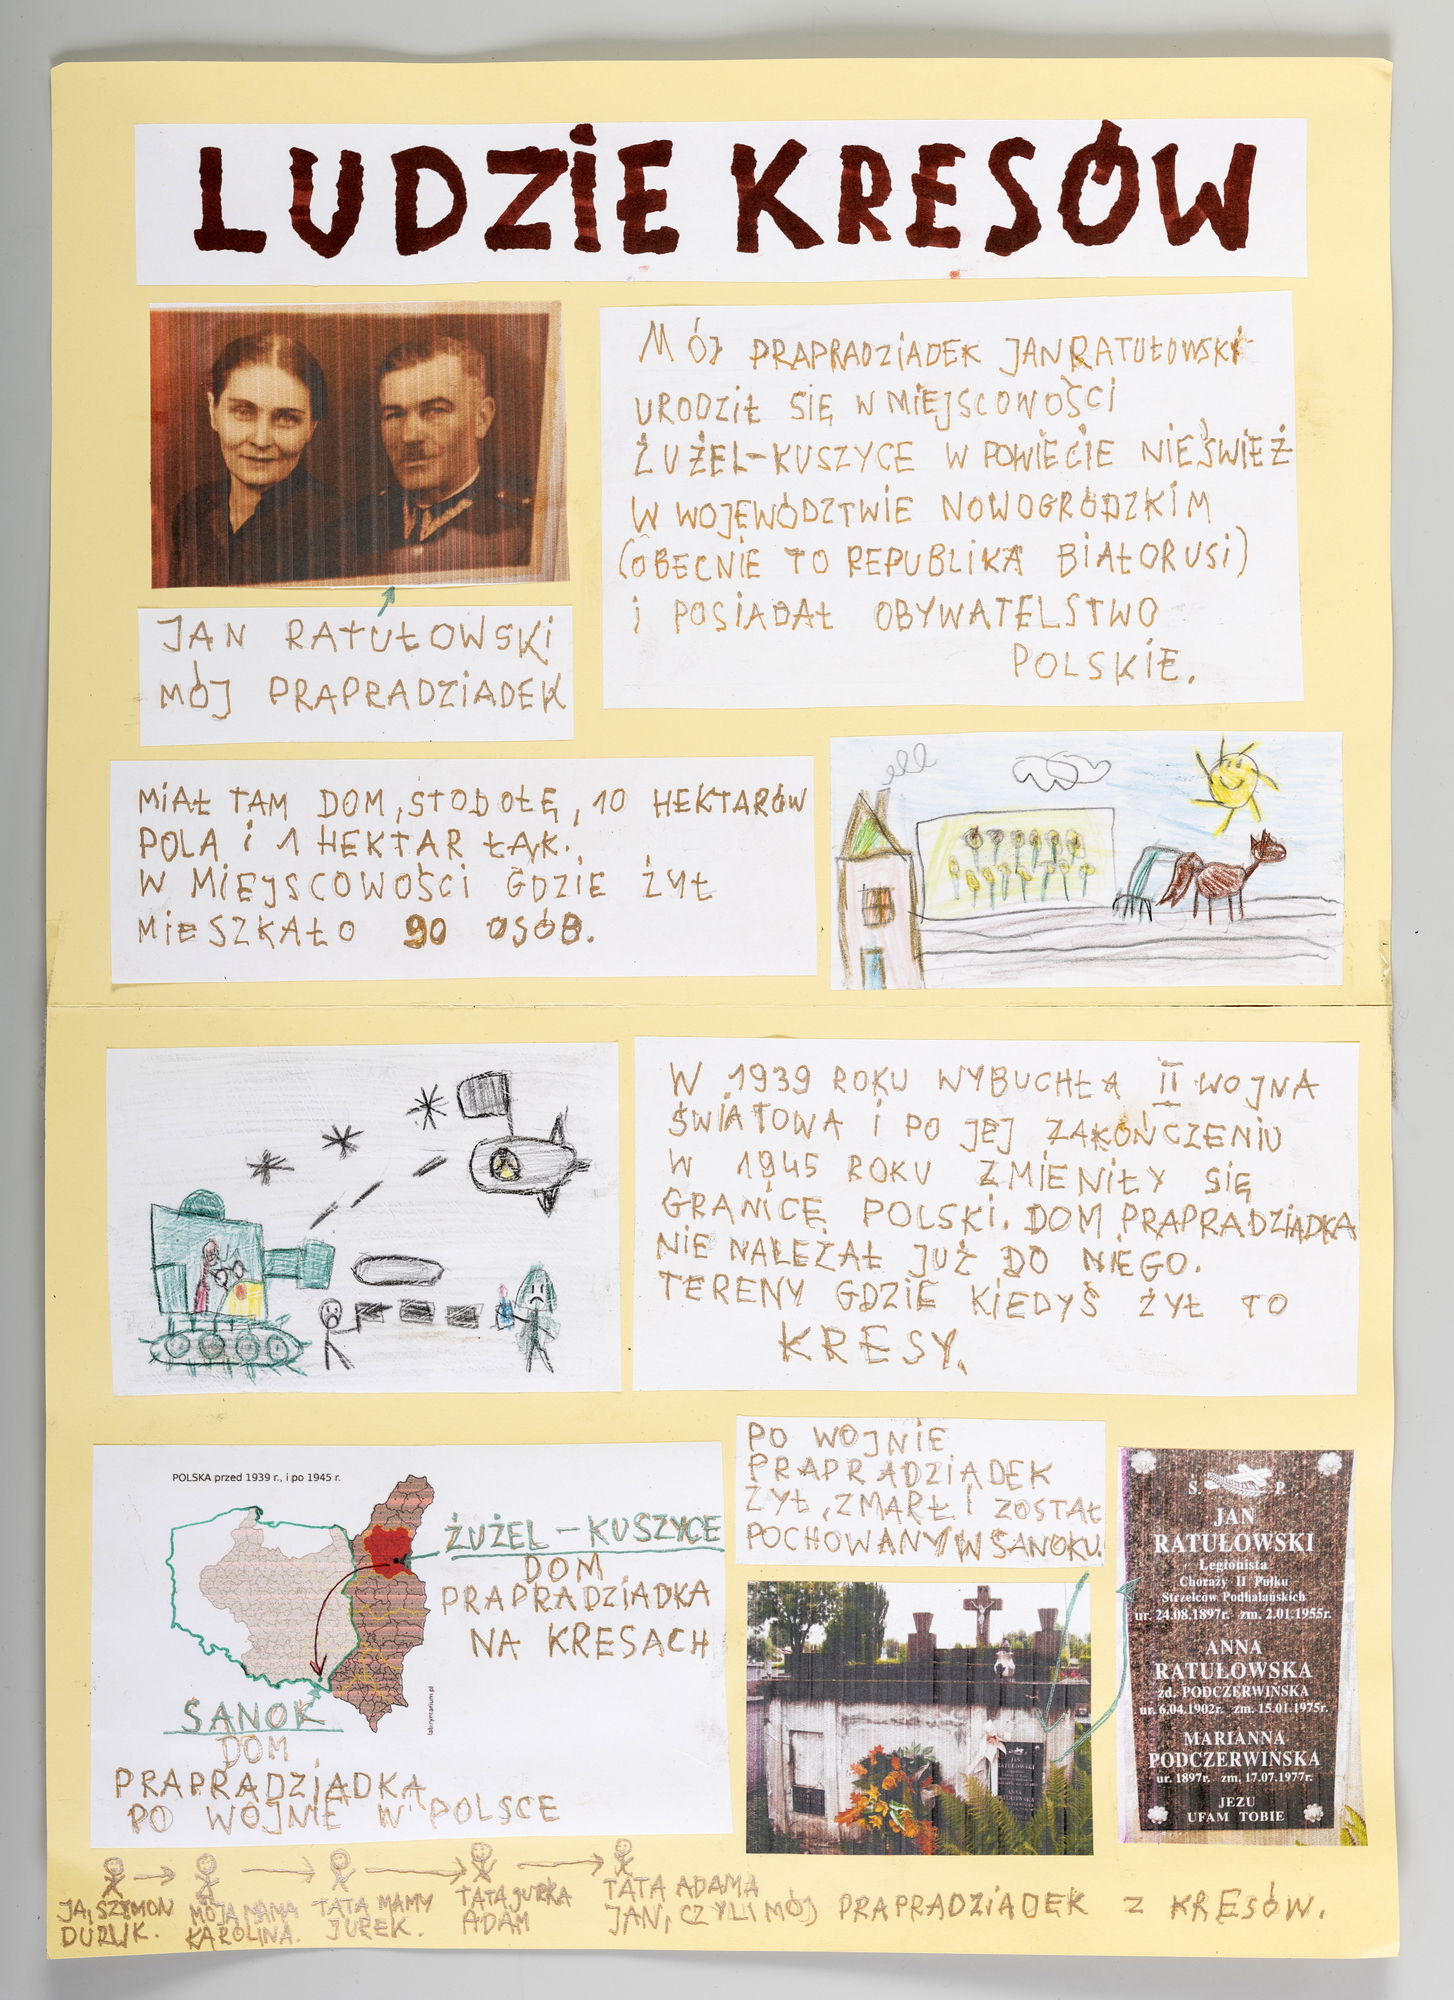 LUDZIE KRESÓW
MÓJ PRAPRADZIADEK JAN RATUŁOWSKI
URODZIŁ SIĘ W MIEJSCOWOŚCI
ŻUŻEL-KUSZYCE W POWIECIE NIEŚWIEŻ
W WOJEWÓDZTWIE NOWOGRÓDZKIM
(OBECNIE TO REPUBLIKA BIAŁORUSI)
I POSIADAŁ OBYWATELSTWO
POLSKIE.
JAN RATUŁOWSKI
MÓJ PRAPRADZIADEK
MIAŁ TAM DOM, STODOŁĘ, 10 HEKTARÓW
POLA I 1 HEKTAR ŁĄK.
W MIEJSCOWOŚCI GDZIE ŻYŁ
MIESZKAŁO 90 OSÓB.
W 1939 ROKU WYBUCHŁA II WOJNA
ŚWIATOWA I PO JEJ ZAKOŃCZENIU
W 1945 ROKU ZMIENIŁY SIĘ
GRANICE POLSKI. DOM PRAPRADZIADKA
NIE NALEŻAŁ JUŻ DO NIEGO.
TERENY GDZIE KIEDYŚ ŻYŁ TO
KRESY.
POLSKA przed 1939 r., i po 1945 r.
ŻUŻEL - KUSZYCE
DOM
PRAPRADZIADKA
NA KRESACH
lakrymarium.pl
SANOK
DOM
PRAPRADZIADKA
PO WOJNIE W POLSCE
PO WOJNIE
PRAPRADZIADEK
ŻYŁ, ZMARŁ I ZOSTAŁ
POCHOWANY W SANOKU.
Ś. P.
JAN
RATUŁOWSKI
Legionista
Chorąży II Pułku
Strzelców Podhalańskich
ur. 24.08.1897r. zm. 2.01.1955r.
ANNA
RATUŁOWSKA
zd. PODCZERWIŃSKA
ur. 6.04.1902r. zm. 15.01.1975r.
MARIANNA
PODCZERWIŃSKA
ur. 1897r. zm. 17.07.1977r.
JEZU
UFAM TOBIE
JA, SZYMON
DURLIK.
MOJA MAMA
KAROLINA.
TATA MAMY
JUREK.
TATA JURKA
ADAM
TATA ADAMA
JAN, CZYLI MÓJ PRAPRADZIADEK Z KRESÓW.